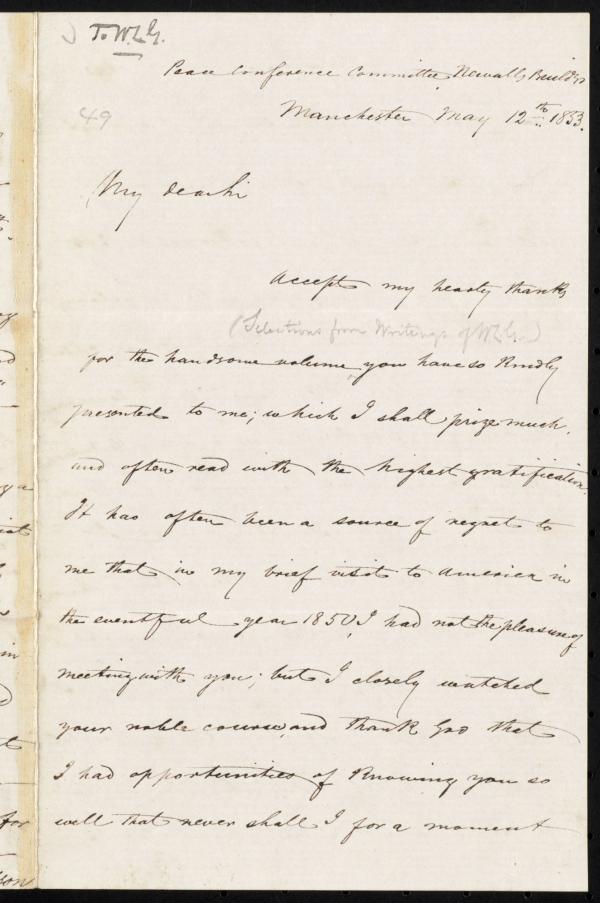 To W.L.G.
Peace Conference Committee, Newalls Buildgs
49
Manchester May 12th 1853.
My dear Sir
Accept my hearty thanks
(Selections from Writings of W.L.G.)
for the handsome volume you have so kindly
presented to me; which I shall prize much,
and often read with the highest gratification.
It has often been a source of regret to
me that in my brief visit to America in
the eventful year 1850, I had not the pleasure of
meeting with you; but I closely watched
your noble course, and thank God that
I had opportunities of knowing you so
well that never shall I for a moment
for